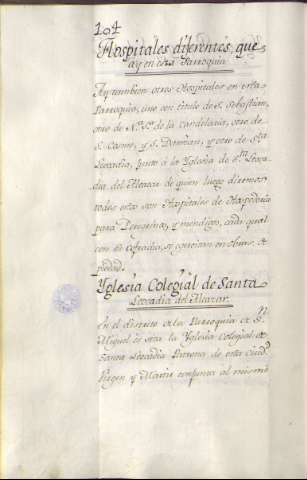 104
Hospitales diferentes, que
ay en esta Parroquia
Ay tambien otros Hospitales en esta
Parroquia, uno con titulo de S. Sebastian,
otro de Nª. Sª. de la Candelaria, otro de
S. Cosme, y S. Damian, y otro de Sta.
Leocadia, junto à la Yglesia de Sta. Leoca
dia del Alcazar de quien luego diremos
todos estos son Hospitales de Hospederia
para Peregrinos, y mendigos, cada qual
con su Cofradia, y exercitan en obras de
piedad.
Yglesia Colegial de Santa
Leocadia del Alcazar.
En el distrito de la Parroquia de Sⁿ.
Miguel es esta la Yglesia Colegial de
Santa Leocadia Patrona de esta Ciudᵈ.
Virgen y Martir conjunta al mismo